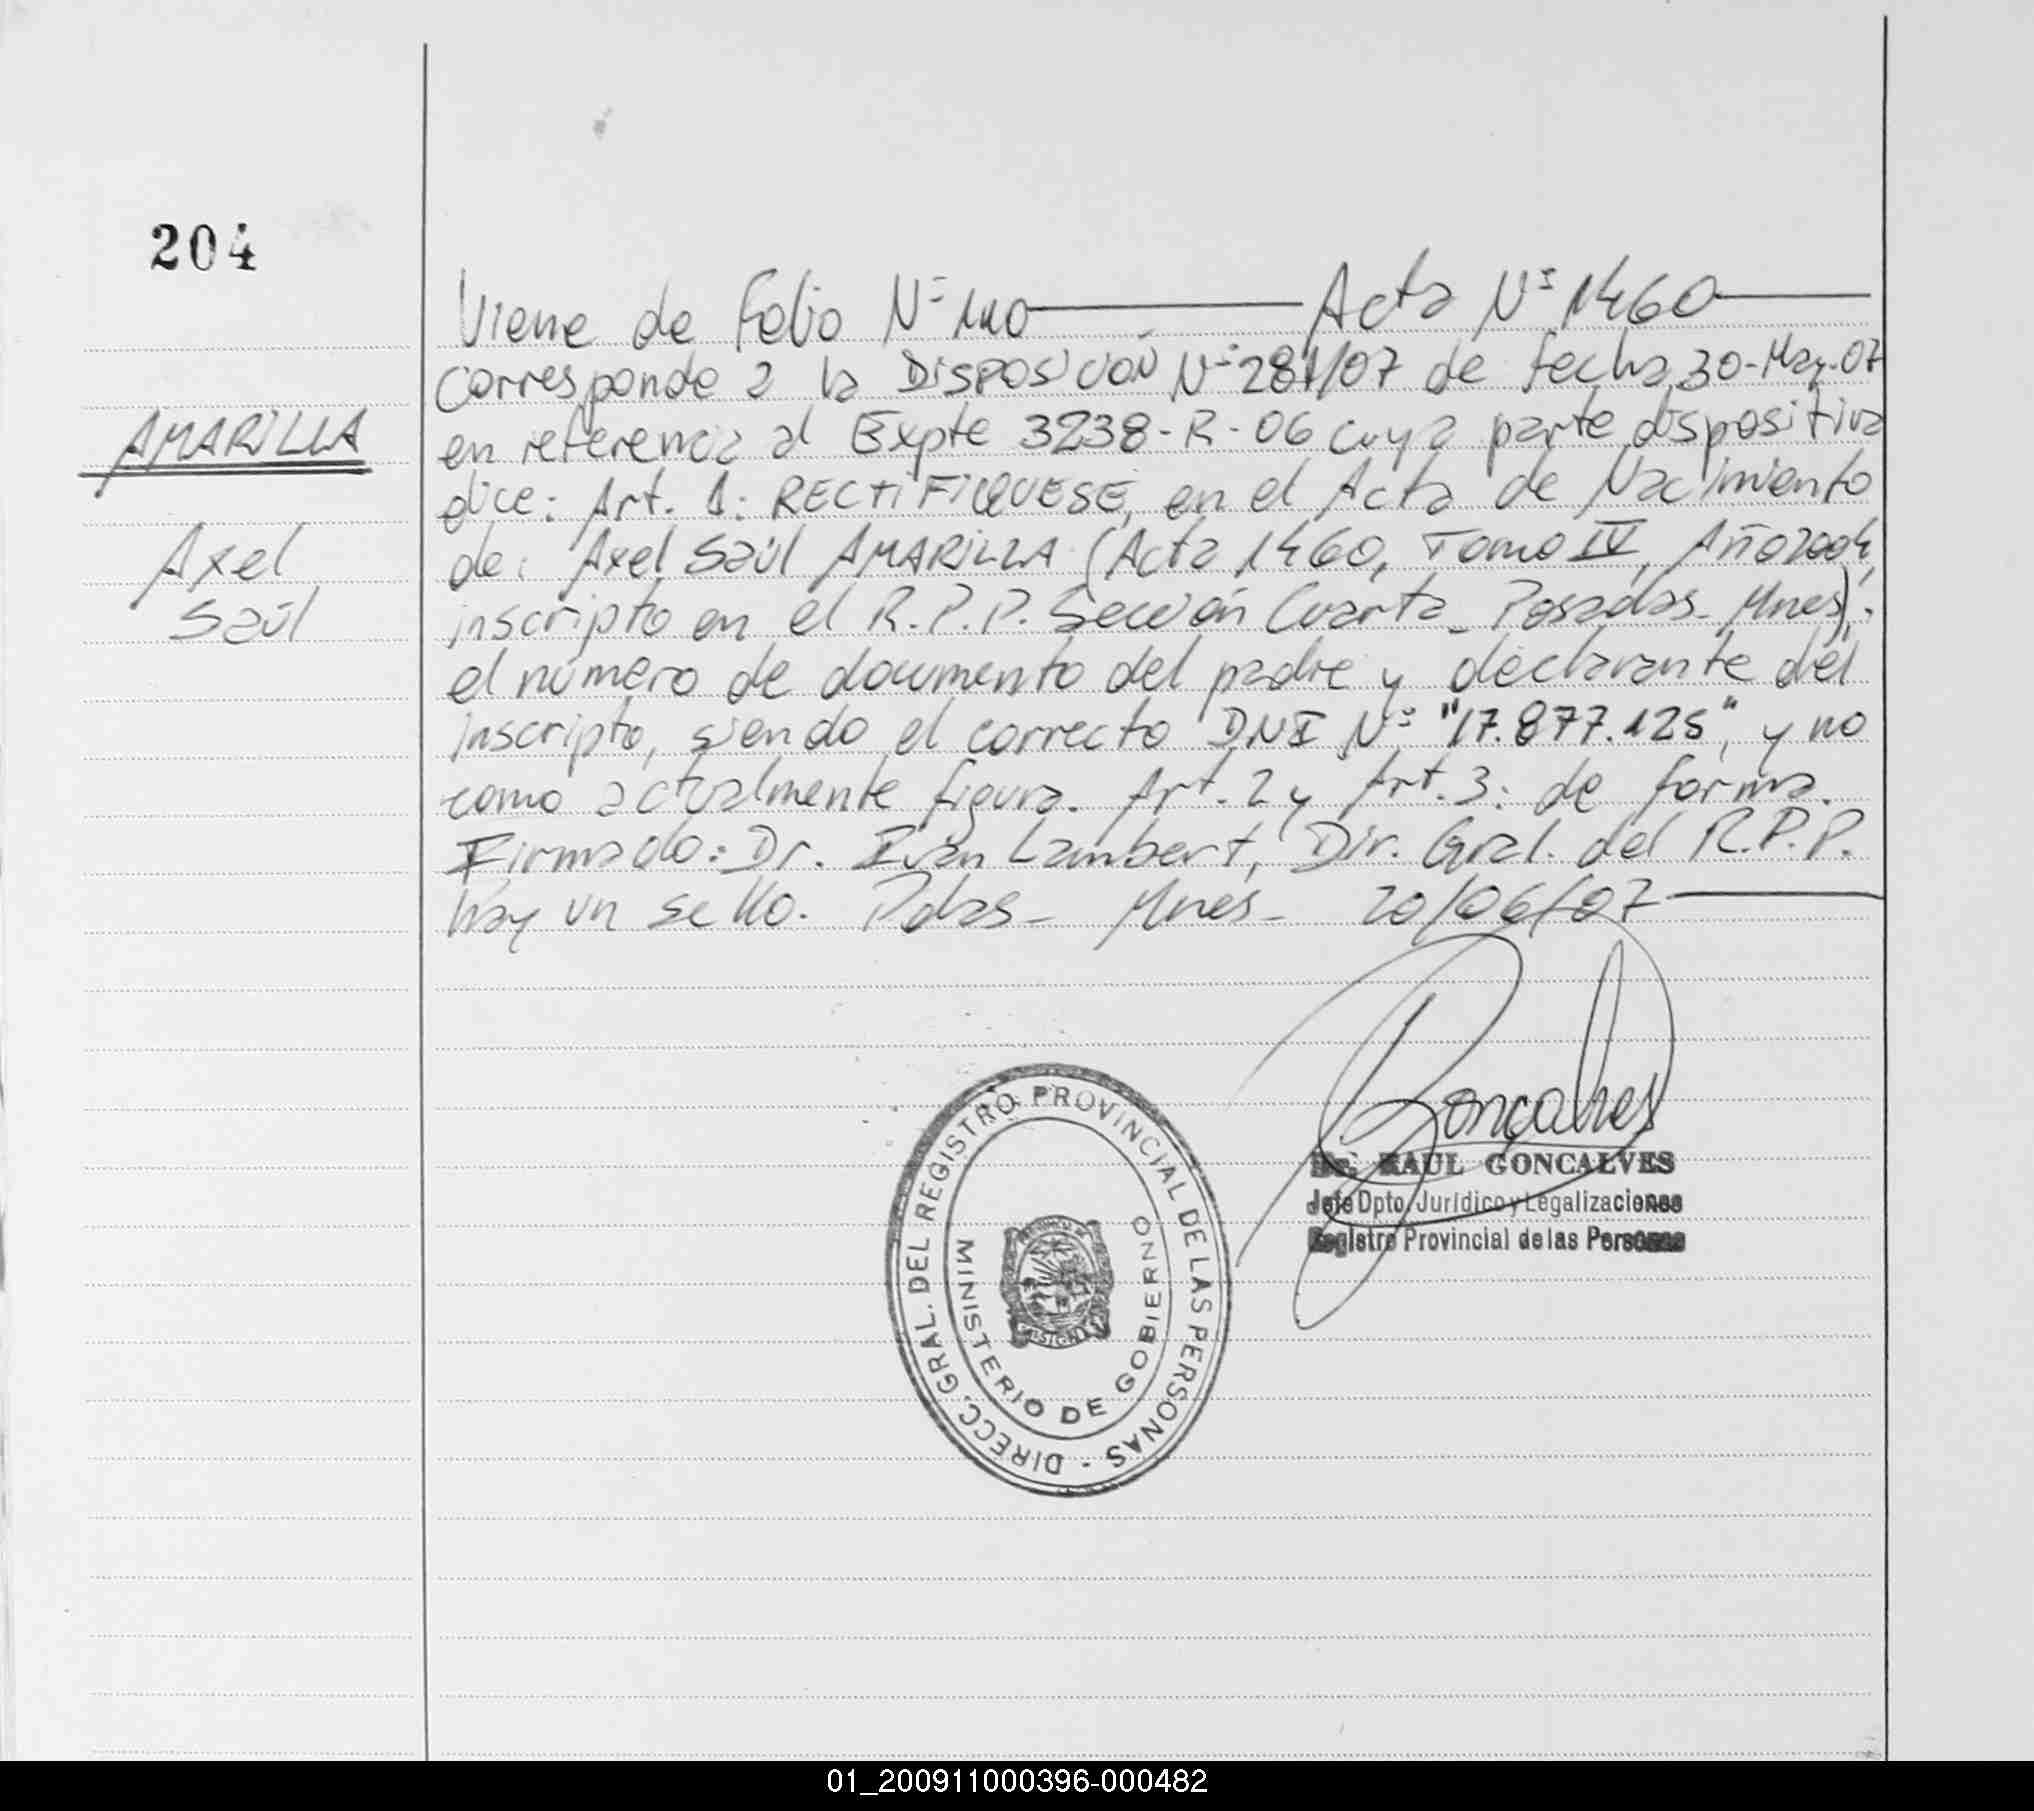 204
AMARILLA
Axel
Saúl
Viene de Folio Nº 110 Acta Nº 1460
Corresponde a la DISPOSICIÓN Nº 281/07 de fecha 30-May-07
en referencia al Expte 3238-R-06 cuya parte dispositiva
dice: Art. 1: RECTIFIQUESE, en el Acta de Nacimiento
de: Axel Saúl AMARILLA (Acta 1460, Tomo IV, Año 2004,
inscripto en el R.P.P. Sección Cuarta - Posadas - Mnes):
el número de documento del padre y declarante del
inscripto, siendo el correcto DNI Nº "17.877.125", y no
como actualmente figura. Art. 2 y Art. 3: de forma.
Firmado: Dr. Iván Lambert, Dir. Gral. del R.P.P.
hay un sello. Pdas - Mnes - 20/06/07
Goncalves
Dr. RAUL GONCALVES
Jefe Dpto. Jurídico y Legalizaciones
Registro Provincial de las Personas
DIRECC. GRAL. DEL REGISTRO PROVINCIAL DE LAS PERSONAS -
MINISTERIO DE GOBIERNO
01_200911000396-000482